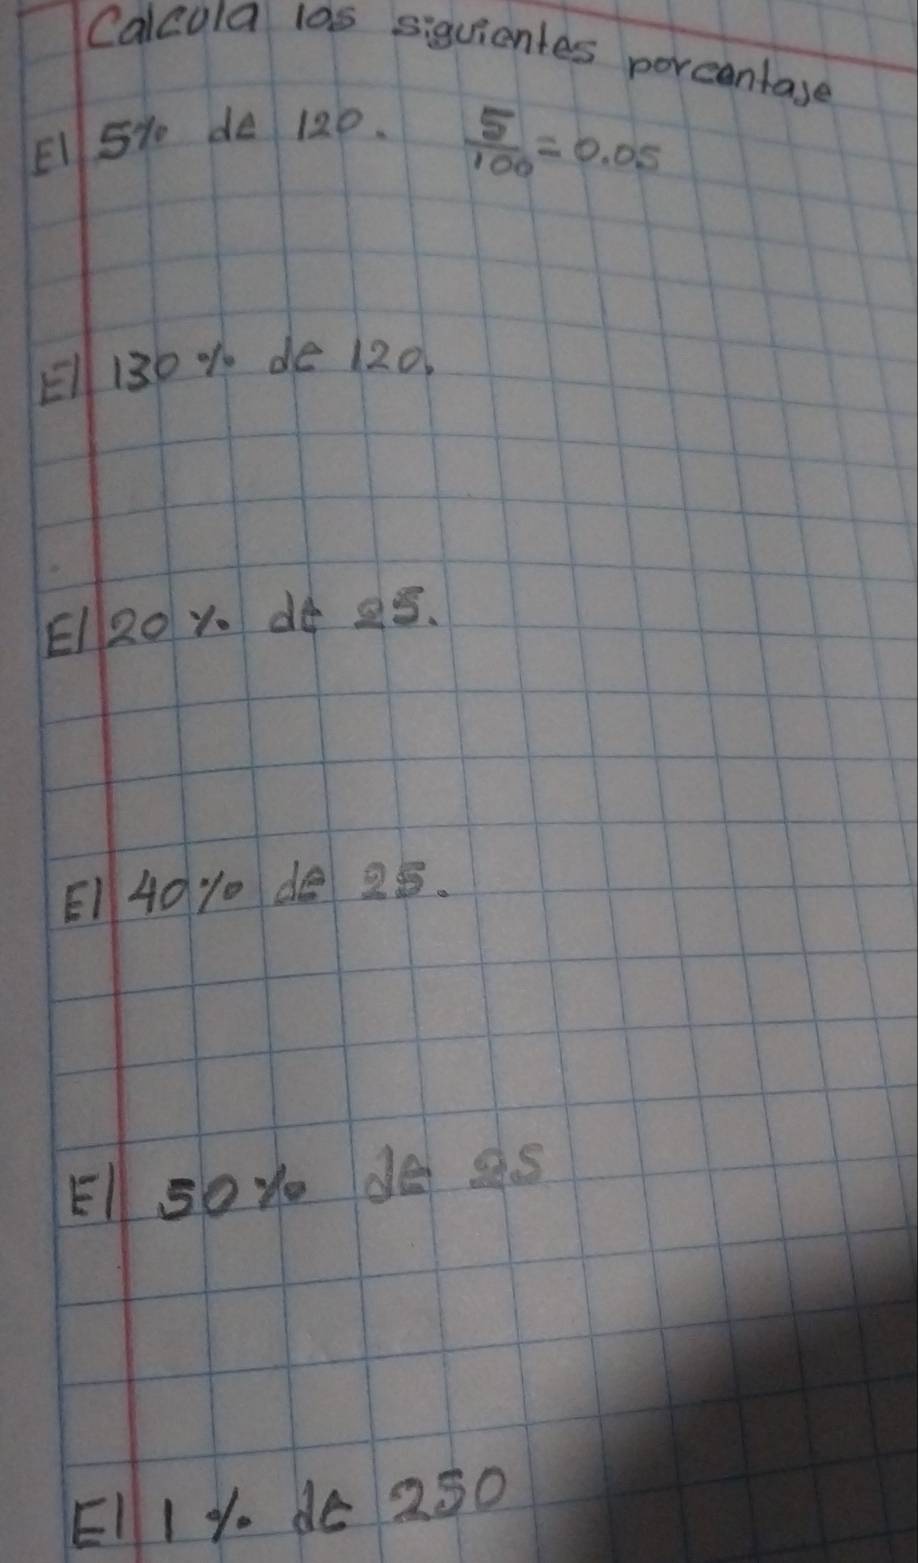 Calcula los siguientes porcentaje
El 5% de 120. 5/100 = 0.05
El 130% de 120.
El 20% de 25.
El 40% de 25.
El 50% de 25
El 1% de 250